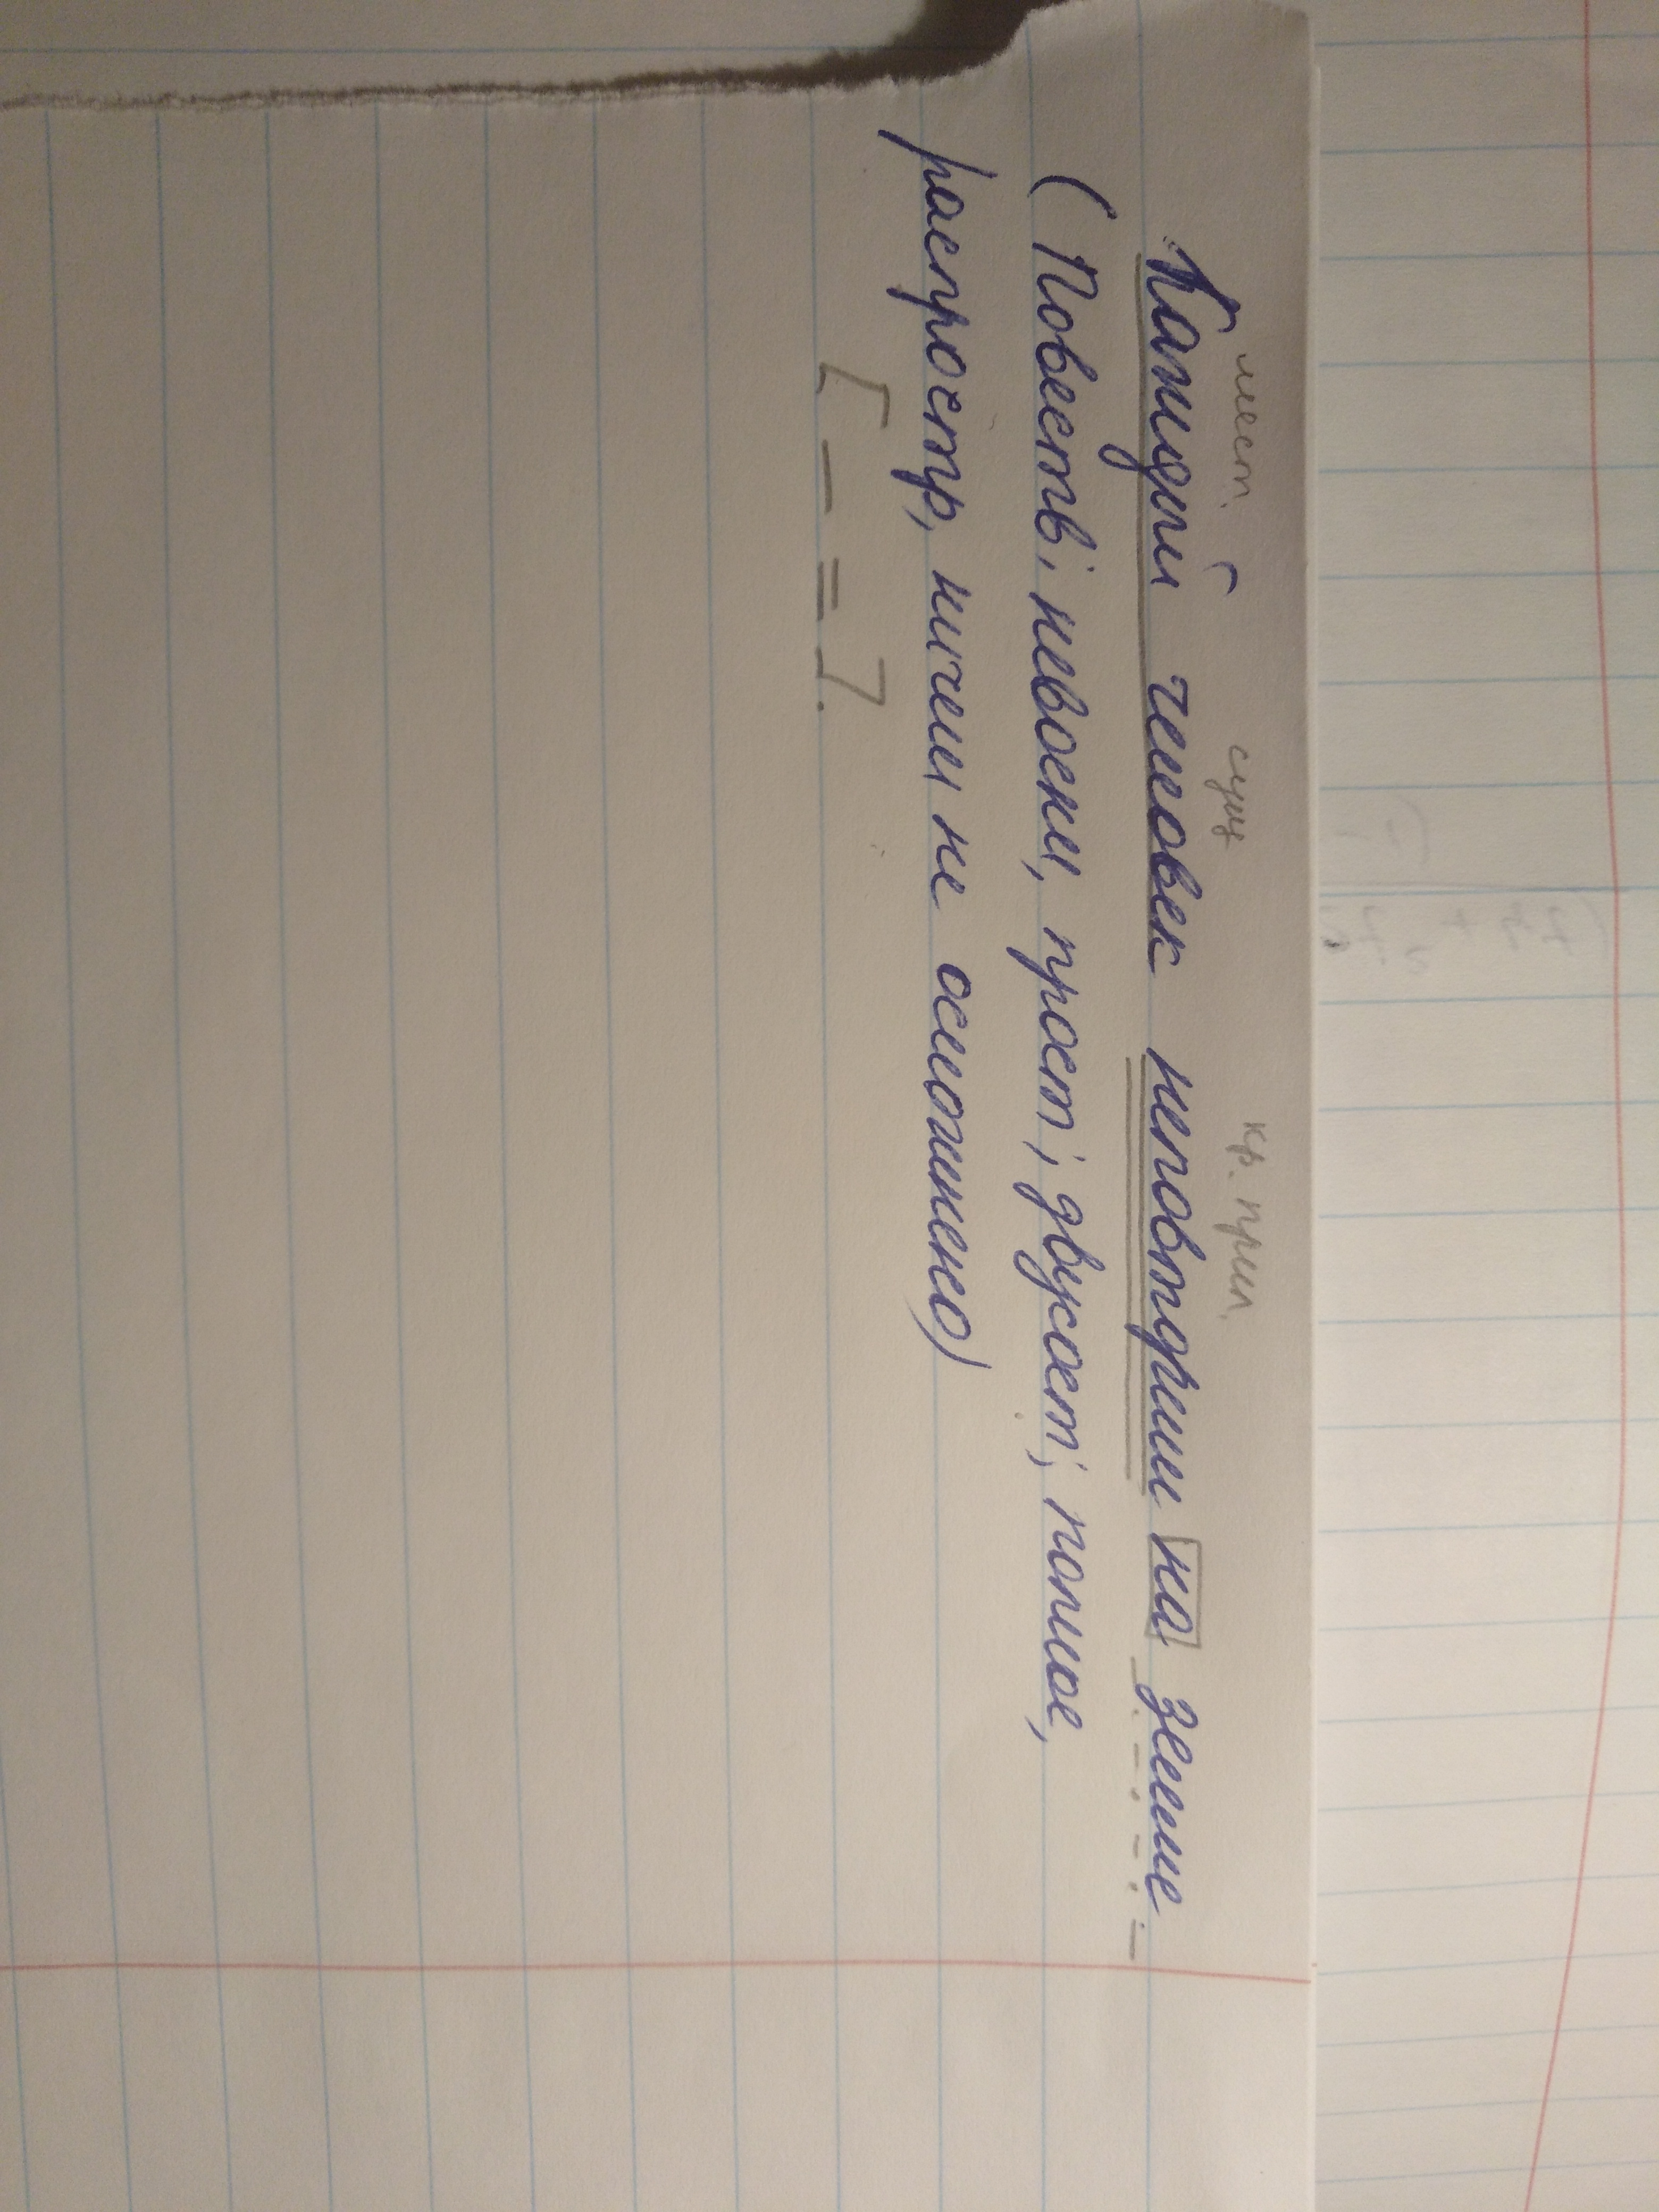 мест. сущ кр. прил.
Каждый человек неповторим на земле
(Повеств; невоскл, прост; двусост; полное,
распростр, ничем не осложнено)
[ — = ].